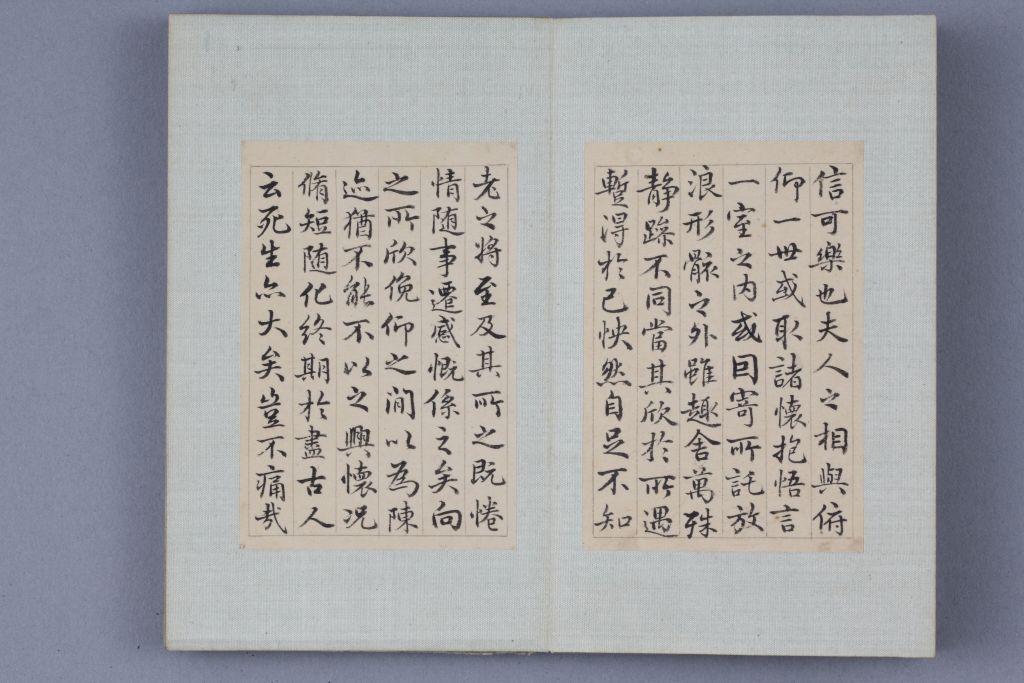 信可樂也夫人之相與俯
仰一世或取諸懷抱悟言
一室之内或因寄所託放
浪形骸之外雖趣舍萬殊
静躁不同當其欣於所遇
暫得於己怏然自足不知
老之將至及其所之既惓
情随事遷感慨係之矣向
之所欣俛仰之閒以為陳
迹猶不能不以之興懷况
脩短随化終期於盡古人
云死生亦大矣豈不痛哉